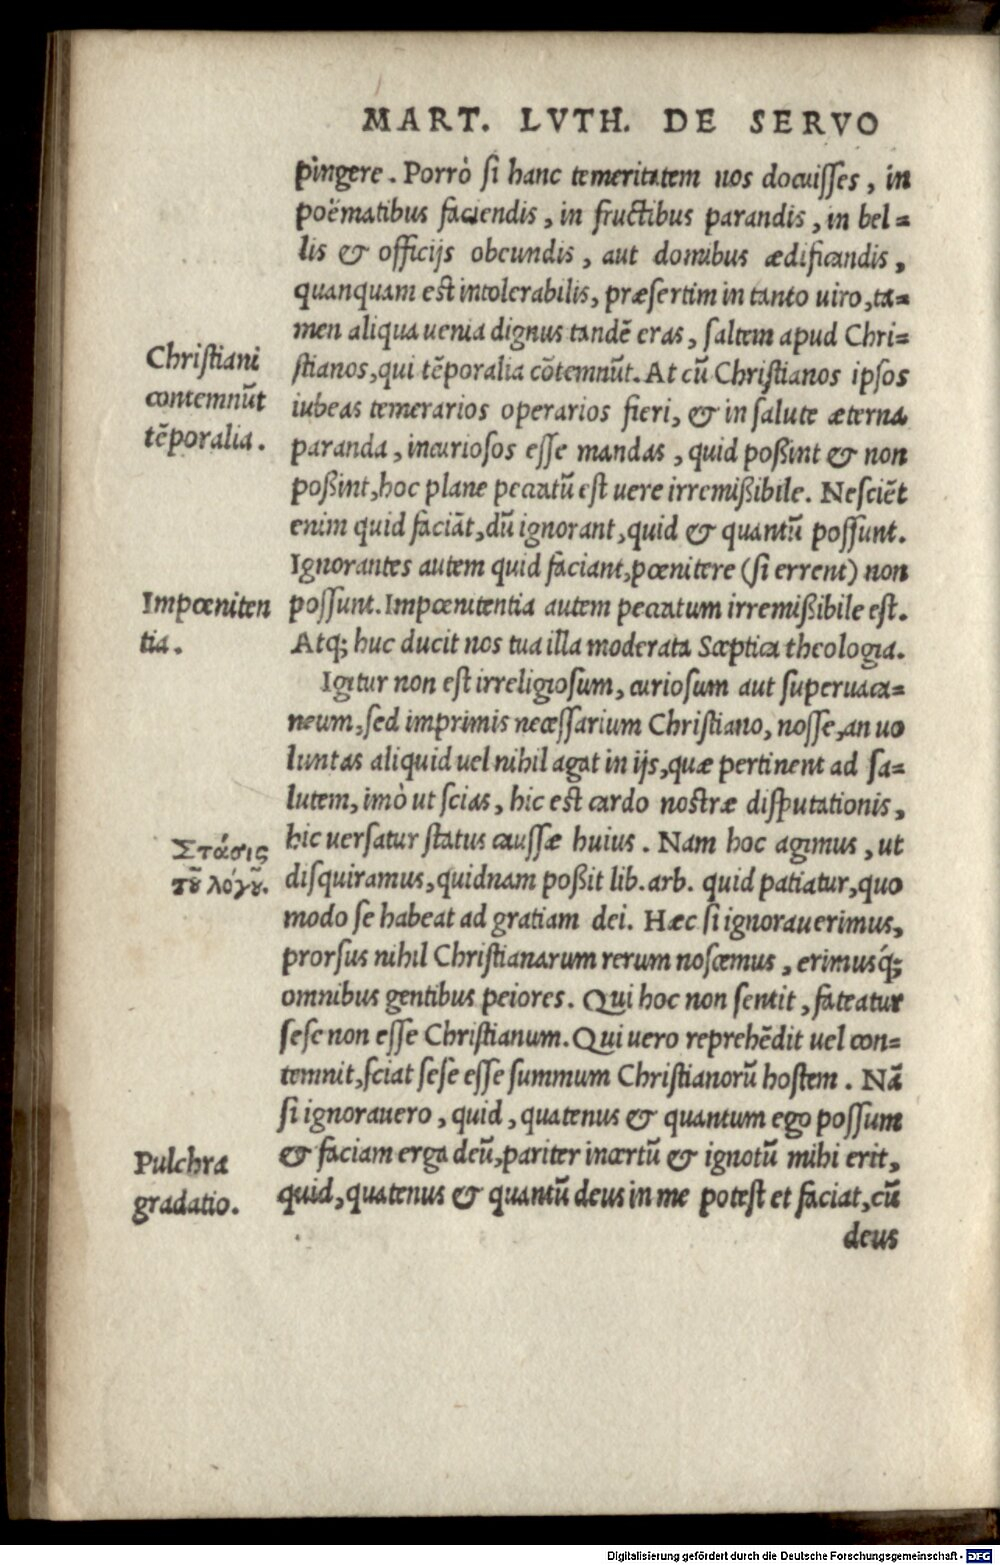 MART. LVTH. DE SERVO
pingere. Porrò si hanc temeritatem nos docuisses, in
poëmatibus faciendis, in fructibus parandis, in bel=
lis & officijs obeundis, aut domibus ædificandis,
quanquam est intolerabilis, præsertim in tanto uiro, ta=
men aliqua uenia dignus tandē eras, saltem apud Chri=
stianos, qui tēporalia cōtemnūt. At cū Christianos ipsos
iubeas temerarios operarios fieri, & in salute æterna
paranda, incuriosos esse mandas, quid poßint & non
poßint, hoc plane peccatū est uere irremißibile. Nesciēt
enim quid faciāt, dū ignorant, quid & quantū possunt.
Ignorantes autem quid faciant, pœnitere (si errent) non
possunt. Impœnitentia autem peccatum irremißibile est.
Atq; huc ducit nos tua illa moderata Scæptica theologia.
Igitur non est irreligiosum, curiosum aut superuaca=
neum, sed imprimis necessarium Christiano, nosse, an uo
luntas aliquid uel nihil agat in ijs, quæ pertinent ad sa=
lutem, imò ut scias, hic est cardo nostræ disputationis,
hic uersatur status caussæ huius. Nam hoc agimus, ut
disquiramus, quidnam poßit lib. arb. quid patiatur, quo
modo se habeat ad gratiam dei. Hæc si ignorauerimus,
prorsus nihil Christianarum rerum noscemus, erimusq́;
omnibus gentibus peiores. Qui hoc non sentit, fateatur
sese non esse Christianum. Qui uero reprehēdit uel con=
temnit, sciat sese esse summum Christianorū hostem. Nā
si ignorauero, quid, quatenus & quantum ego possum
& faciam erga deū, pariter incertū & ignotū mihi erit,
quid, quatenus & quantū deus in me potest et faciat, cū
deus
Christiani
contemnūt
tēporalia.
Impœniten
tia.
Στάσις
τȣ͂ λόγȣ.
Pulchra
gradatio.
Digitalisierung gefördert durch die Deutsche Forschungsgemeinschaft - DFG